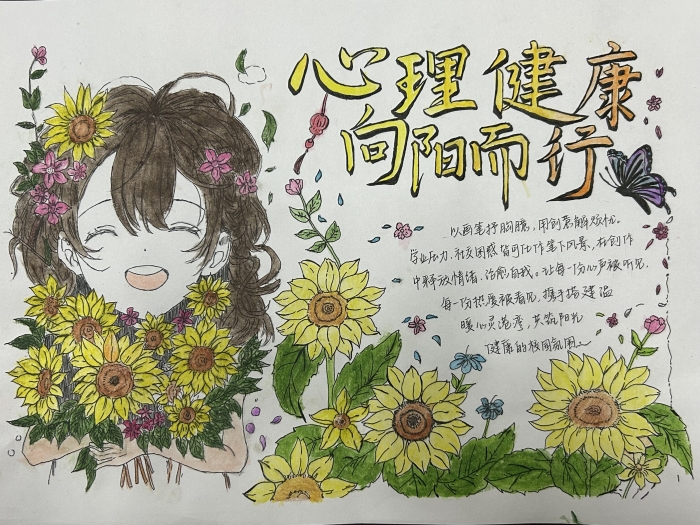 心理健康
向阳而行
以画笔抒胸臆，用创意解烦忧。
学业压力、社交困惑皆可化作笔下风景，在创作
中释放情绪、治愈自我。让每一份心声被听见，
每一份热度被看见，携手搭建温
暖心灵港湾，共筑阳光
健康的校园氛围。